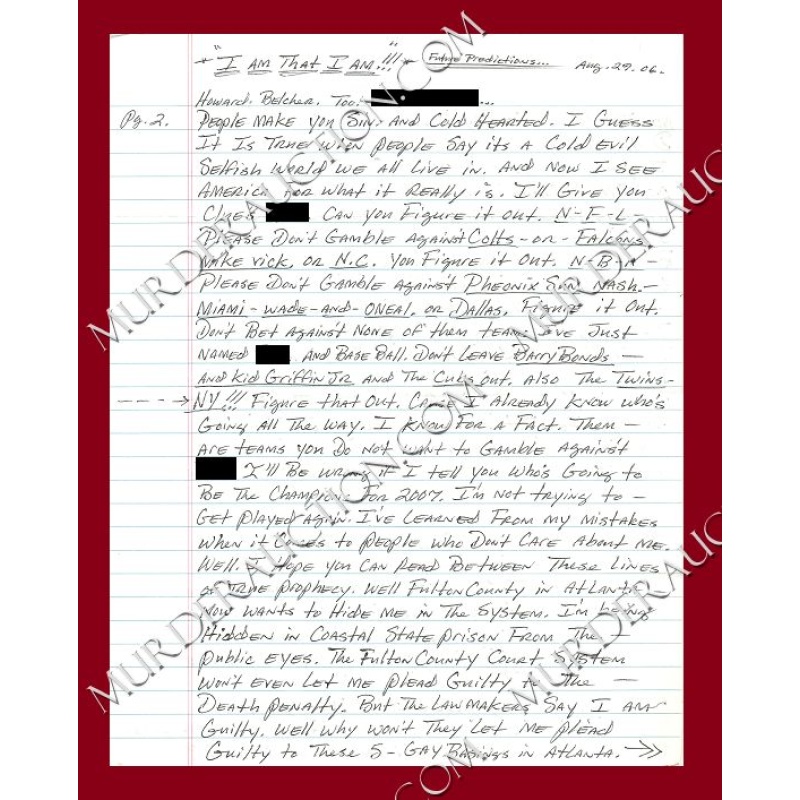 * "I AM THAT I AM"!!! * Future Predictions... Aug. 29. 06.
Howard. Belcher. Too. ...
Pg. 2. PEOPLE MAKE YOU SIN. AND COLD HEARTED. I GUESS
IT IS TRUE WHEN PEOPLE SAY ITS A COLD EVIL
SELFISH WORLD WE ALL LIVE IN. AND NOW I SEE
AMERICA FOR WHAT IT REALLY IS. I'LL GIVE YOU
CLUES CAN YOU FIGURE IT OUT. N-F-L-
PLEASE DON'T GAMBLE AGAINST COLTS-OR-FALCONS,
MIKE VICK, OR N.C. YOU FIGURE IT OUT. N-B-A-
PLEASE DON'T GAMBLE AGAINST PHEONIX SUN NASH.-
MIAMI-WADE-AND-ONEAL, OR DALLAS. FIGURE IT OUT.
DON'T BET AGAINST NONE OF THEM TEAMS I'VE JUST
NAMED AND BASE BALL. DON'T LEAVE BARRY BONDS-
AND KID GRIFFIN JR AND THE CUBS OUT. ALSO THE TWINS-
----> NY!!! FIGURE THAT OUT. CAUSE I ALREADY KNOW WHO'S
GOING ALL THE WAY. I KNOW FOR A FACT. THEM-
ARE TEAMS YOU DO NOT WANT TO GAMBLE AGAINST
I'LL BE WRONG IF I TELL YOU WHO'S GOING TO
BE THE CHAMPION. FOR 2007. I'M NOT TRYING TO-
GET PLAYED AGAIN. I'VE LEARNED FROM MY MISTAKES
WHEN IT COMES TO PEOPLE WHO DON'T CARE ABOUT ME.
WELL. I HOPE YOU CAN READ BETWEEN THESE LINES
OF TRUE PROPHECY. WELL FULTON COUNTY IN ATLANTA
NOW WANTS TO HIDE ME IN THE SYSTEM. I'M BEING
HIDDEN IN COASTAL STATE PRISON FROM THE-
PUBLIC EYES. THE FULTON COUNTY COURT SYSTEM
WON'T EVEN LET ME PLEAD GUILTY TO THE-
DEATH PENALTY. BUT THE LAWMAKERS SAY I AM
GUILTY. WELL WHY WON'T THEY LET ME PLEAD
GUILTY TO THESE 5-GAY BASINGS IN ATLANTA. ->>
MURDERAUCTION.COM